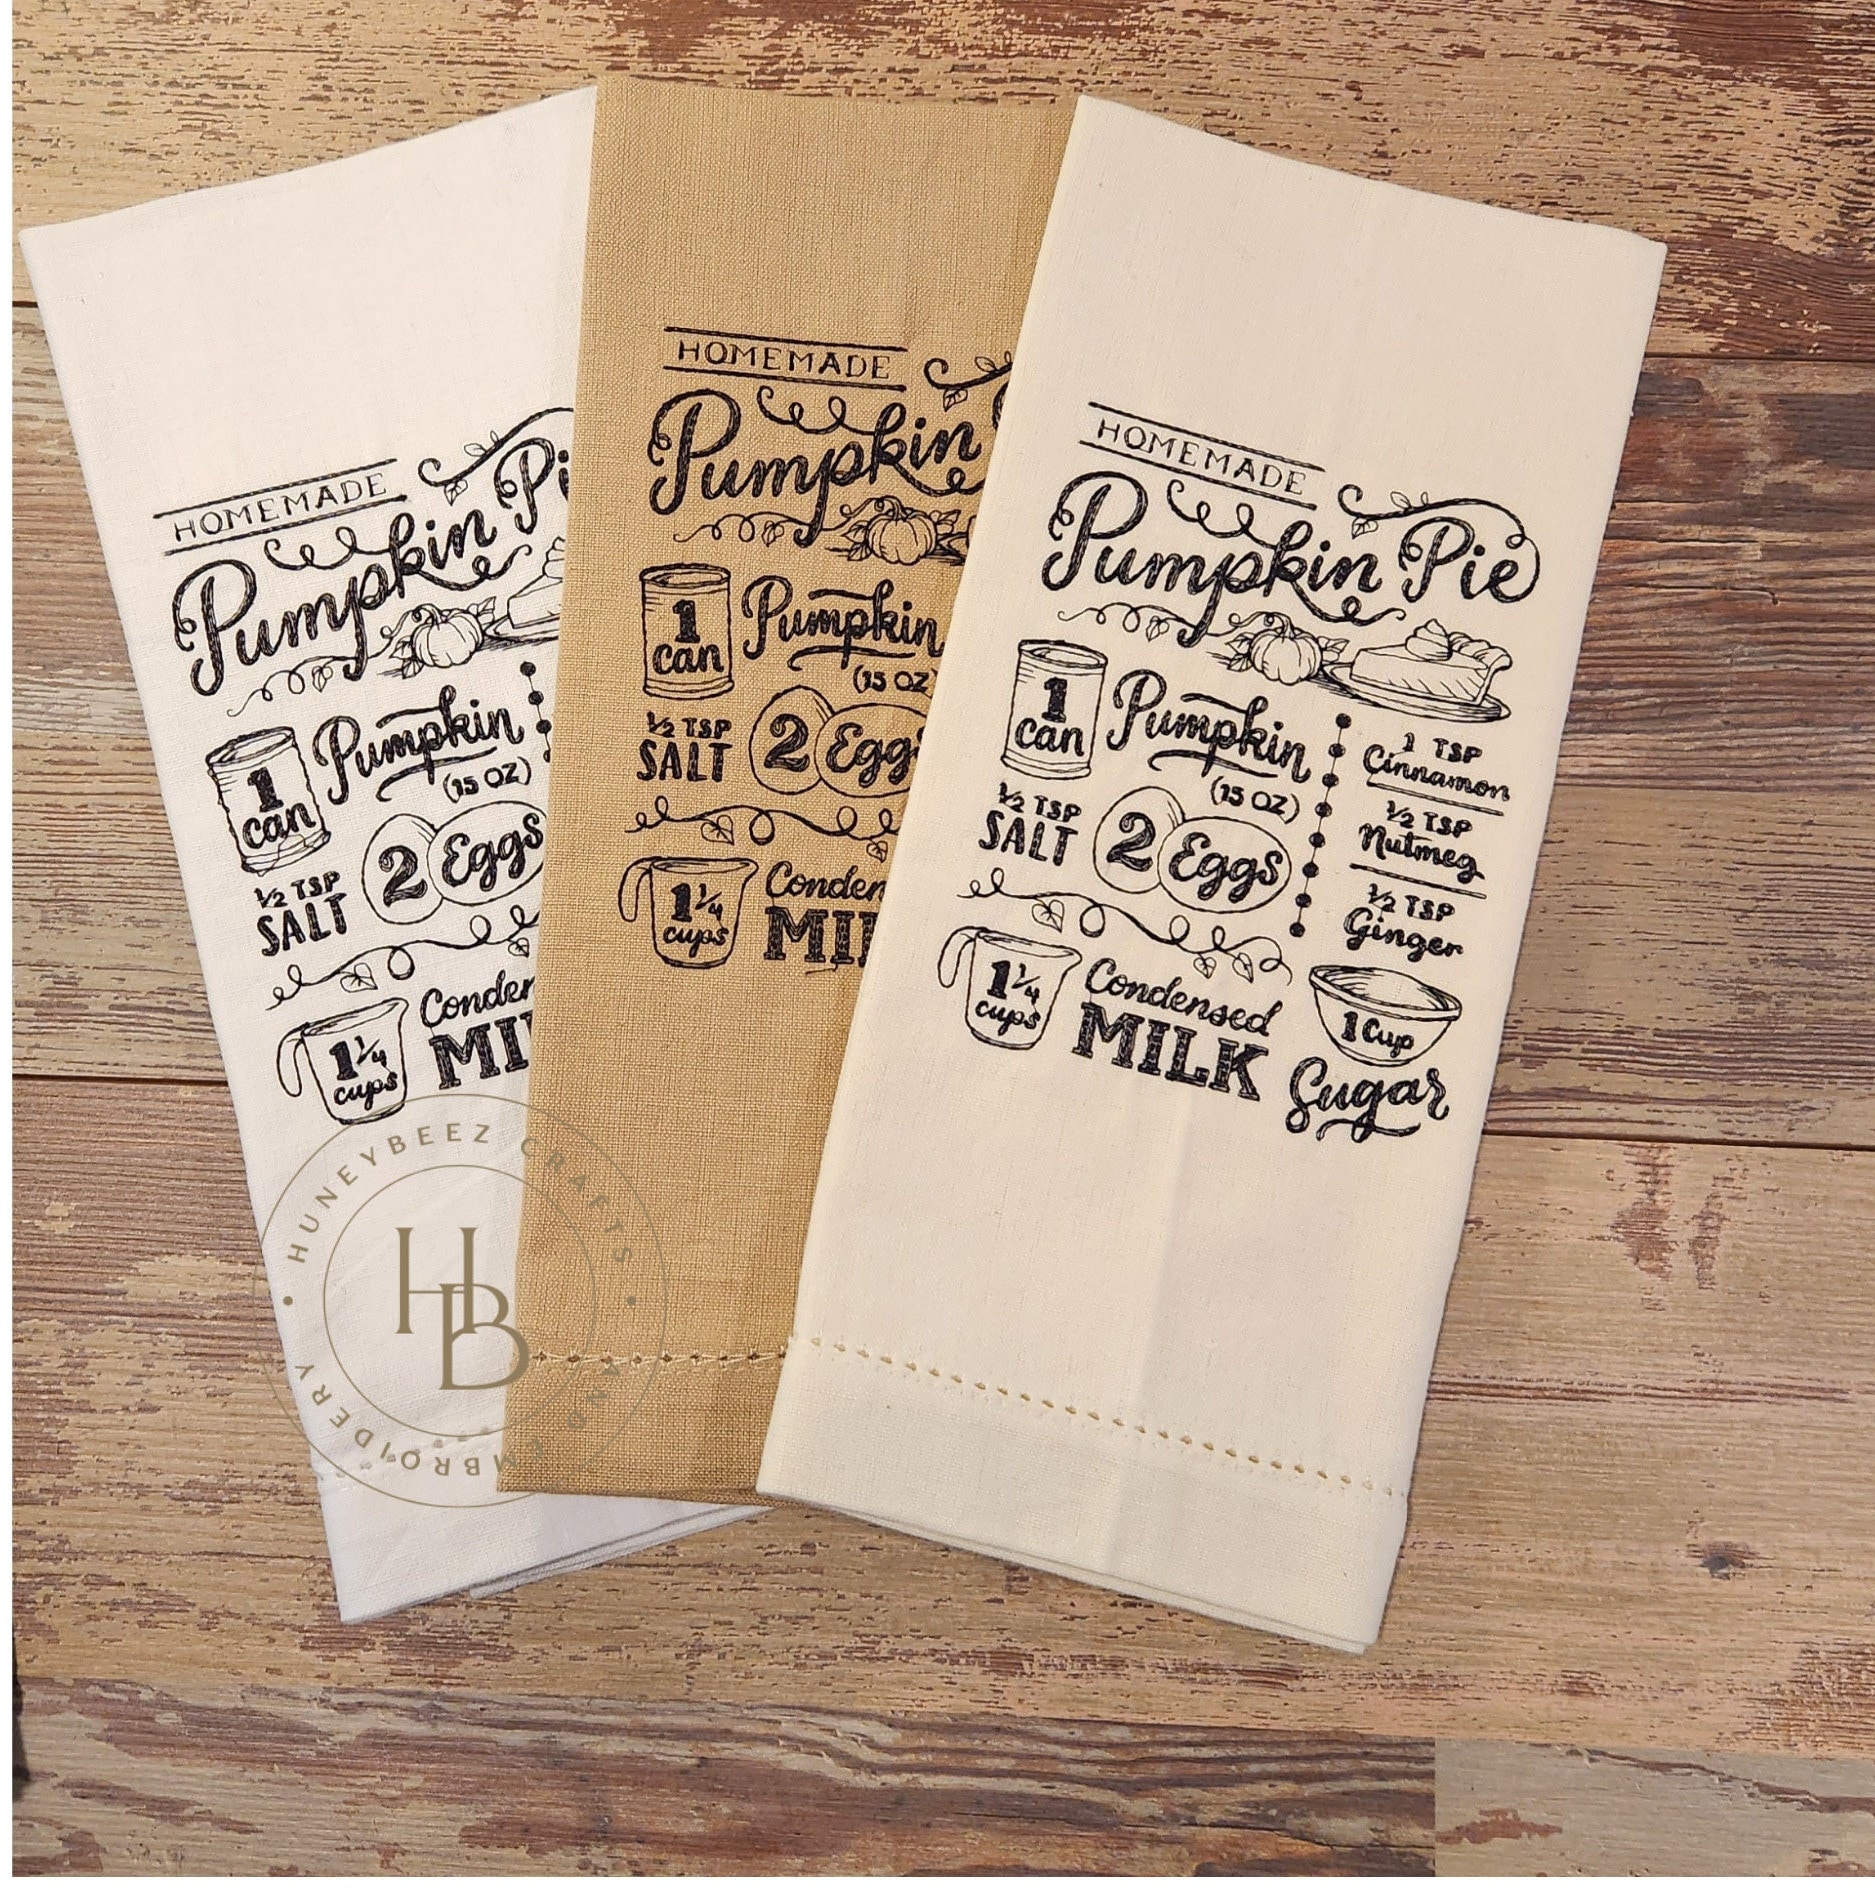 HOMEMADE
Pumpkin Pi
1
can
Pumpkin
(15 OZ)
½ TSP
SALT
2 Eggs
1¼
cups
Conden
MI
HOMEMADE
Pumpkin
1
can
Pumpkin
(15 OZ)
½ TSP
SALT
2 Eggs
1¼
cups
Conden
MI
HOMEMADE
Pumpkin Pie
1
can
Pumpkin
(15 OZ)
½ TSP
SALT
2 Eggs
1 TSP
Cinnamon
½ TSP
Nutmeg
½ TSP
Ginger
1¼
cups
Condensed
MILK
1 Cup
Sugar
• HUNEYBEEZ CRAFTS •
AND EMBROIDERY
HB